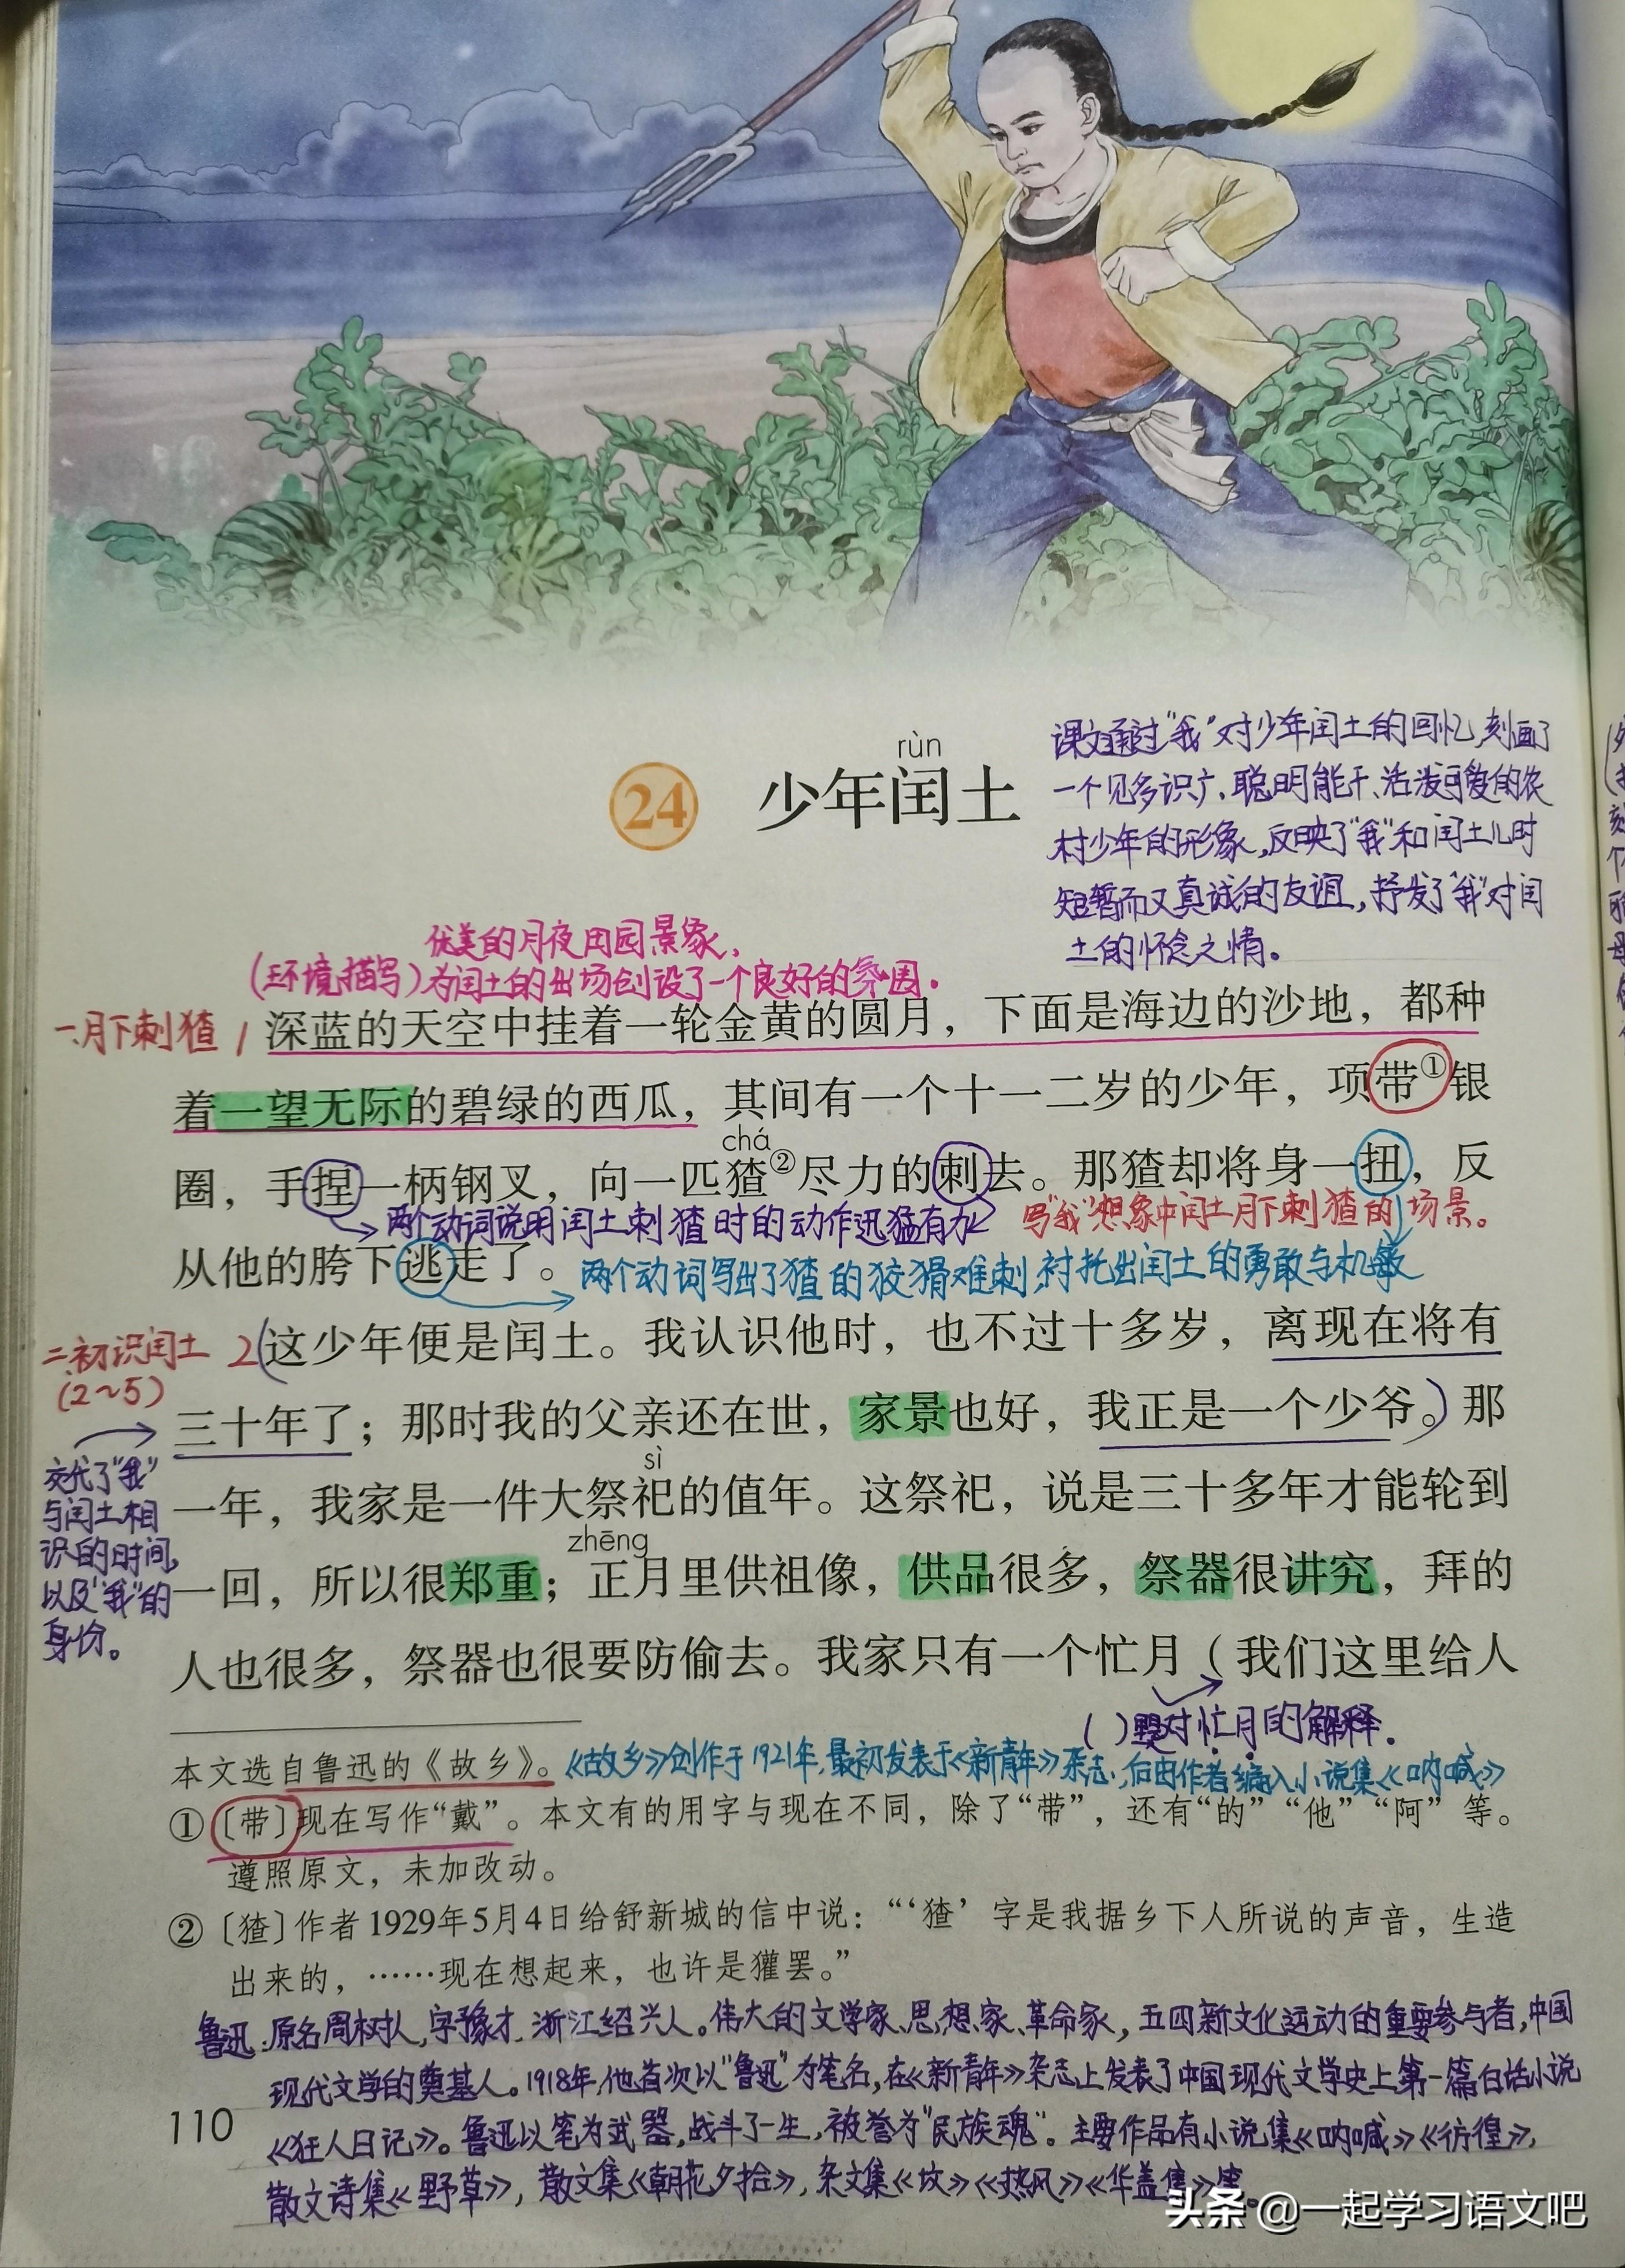 rùn
24 少年闰土
课文通过“我”对少年闰土的回忆,刻画了
一个见多识广、聪明能干、活泼可爱的农
村少年的形象,反映了“我”和闰土儿时
短暂而又真诚的友谊,抒发了“我”对闰
土的怀念之情。
优美的月夜田园景象,
(环境描写)为闰土的出场创设了一个良好的氛围。
一.月下刺猹 1 深蓝的天空中挂着一轮金黄的圆月，下面是海边的沙地，都种
着一望无际的碧绿的西瓜，其间有一个十一二岁的少年，项带①银
chá
圈，手捏一柄钢叉，向一匹猹②尽力的刺去。那猹却将身一扭，反
两个动词说明闰土刺猹时的动作迅猛有力
写“我”想象中闰土月下刺猹的场景。
从他的胯下逃走了。
两个动词写出了猹的狡猾难刺,衬托出闰土的勇敢与机敏
二.初识闰土
(2~5)
2(这少年便是闰土。我认识他时，也不过十多岁，离现在将有
三十年了；那时我的父亲还在世，家景也好，我正是一个少爷。)那
交代了“我”
与闰土相
识的时间,
以及“我”的
身份。
sì
一年，我家是一件大祭祀的值年。这祭祀，说是三十多年才能轮到
zhēng
一回，所以很郑重；正月里供祖像，供品很多，祭器很讲究，拜的
人也很多，祭器也很要防偷去。我家只有一个忙月（我们这里给人
( )里是对忙月的解释.
本文选自鲁迅的《故乡》。
《故乡》创作于1921年,最初发表于《新青年》杂志,后由作者编入小说集《呐喊》
①〔带〕现在写作“戴”。本文有的用字与现在不同，除了“带”，还有“的”“他”“阿”等。
遵照原文，未加改动。
②〔猹〕作者1929年5月4日给舒新城的信中说：“‘猹’字是我据乡下人所说的声音，生造
出来的，……现在想起来，也许是獾罢。”
鲁迅:原名周树人,字豫才,浙江绍兴人。伟大的文学家、思想家、革命家,五四新文化运动的重要参与者,中国
现代文学的奠基人。1918年,他首次以“鲁迅”为笔名,在《新青年》杂志上发表了中国现代文学史上第一篇白话小说
《狂人日记》。鲁迅以笔为武器,战斗了一生,被誉为“民族魂”。主要作品有小说集《呐喊》《彷徨》,
散文诗集《野草》,散文集《朝花夕拾》,杂文集《坟》《热风》《华盖集》等。
110
头条 @一起学习语文吧